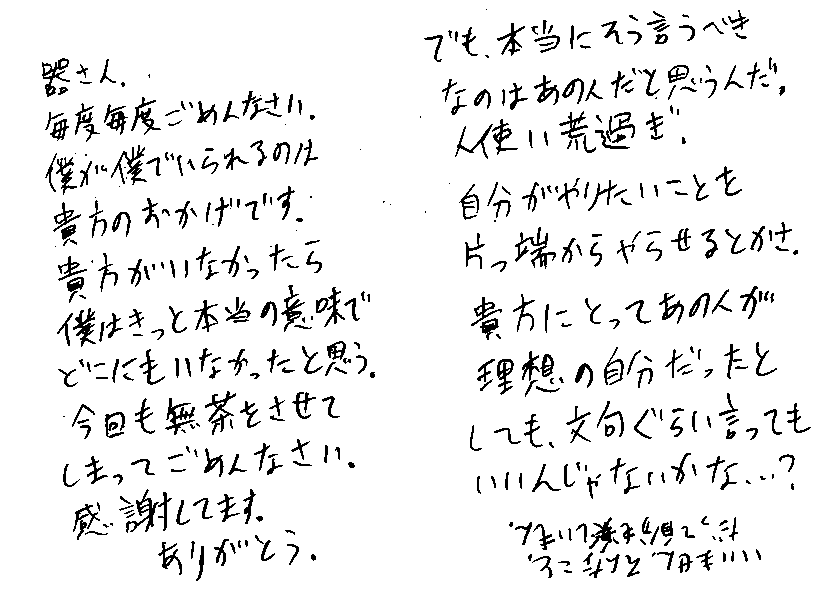 器さん。
毎度毎度ごめんなさい。
僕が僕でいられるのは
貴方のおかげです。
貴方がいなかったら
僕はきっと本当の意味で
どこにもいなかったと思う。
今回も無茶をさせて
しまってごめんなさい。
感謝してます。
ありがとう。
でも、本当にそう言うべき
なのはあの人だと思うんだ。
人使い荒過ぎ。
自分がやりたいことを
片っ端からやらせるとかさ。
貴方にとってあの人が
理想の自分だったと
しても、文句ぐらい言っても
いいんじゃないかな…?